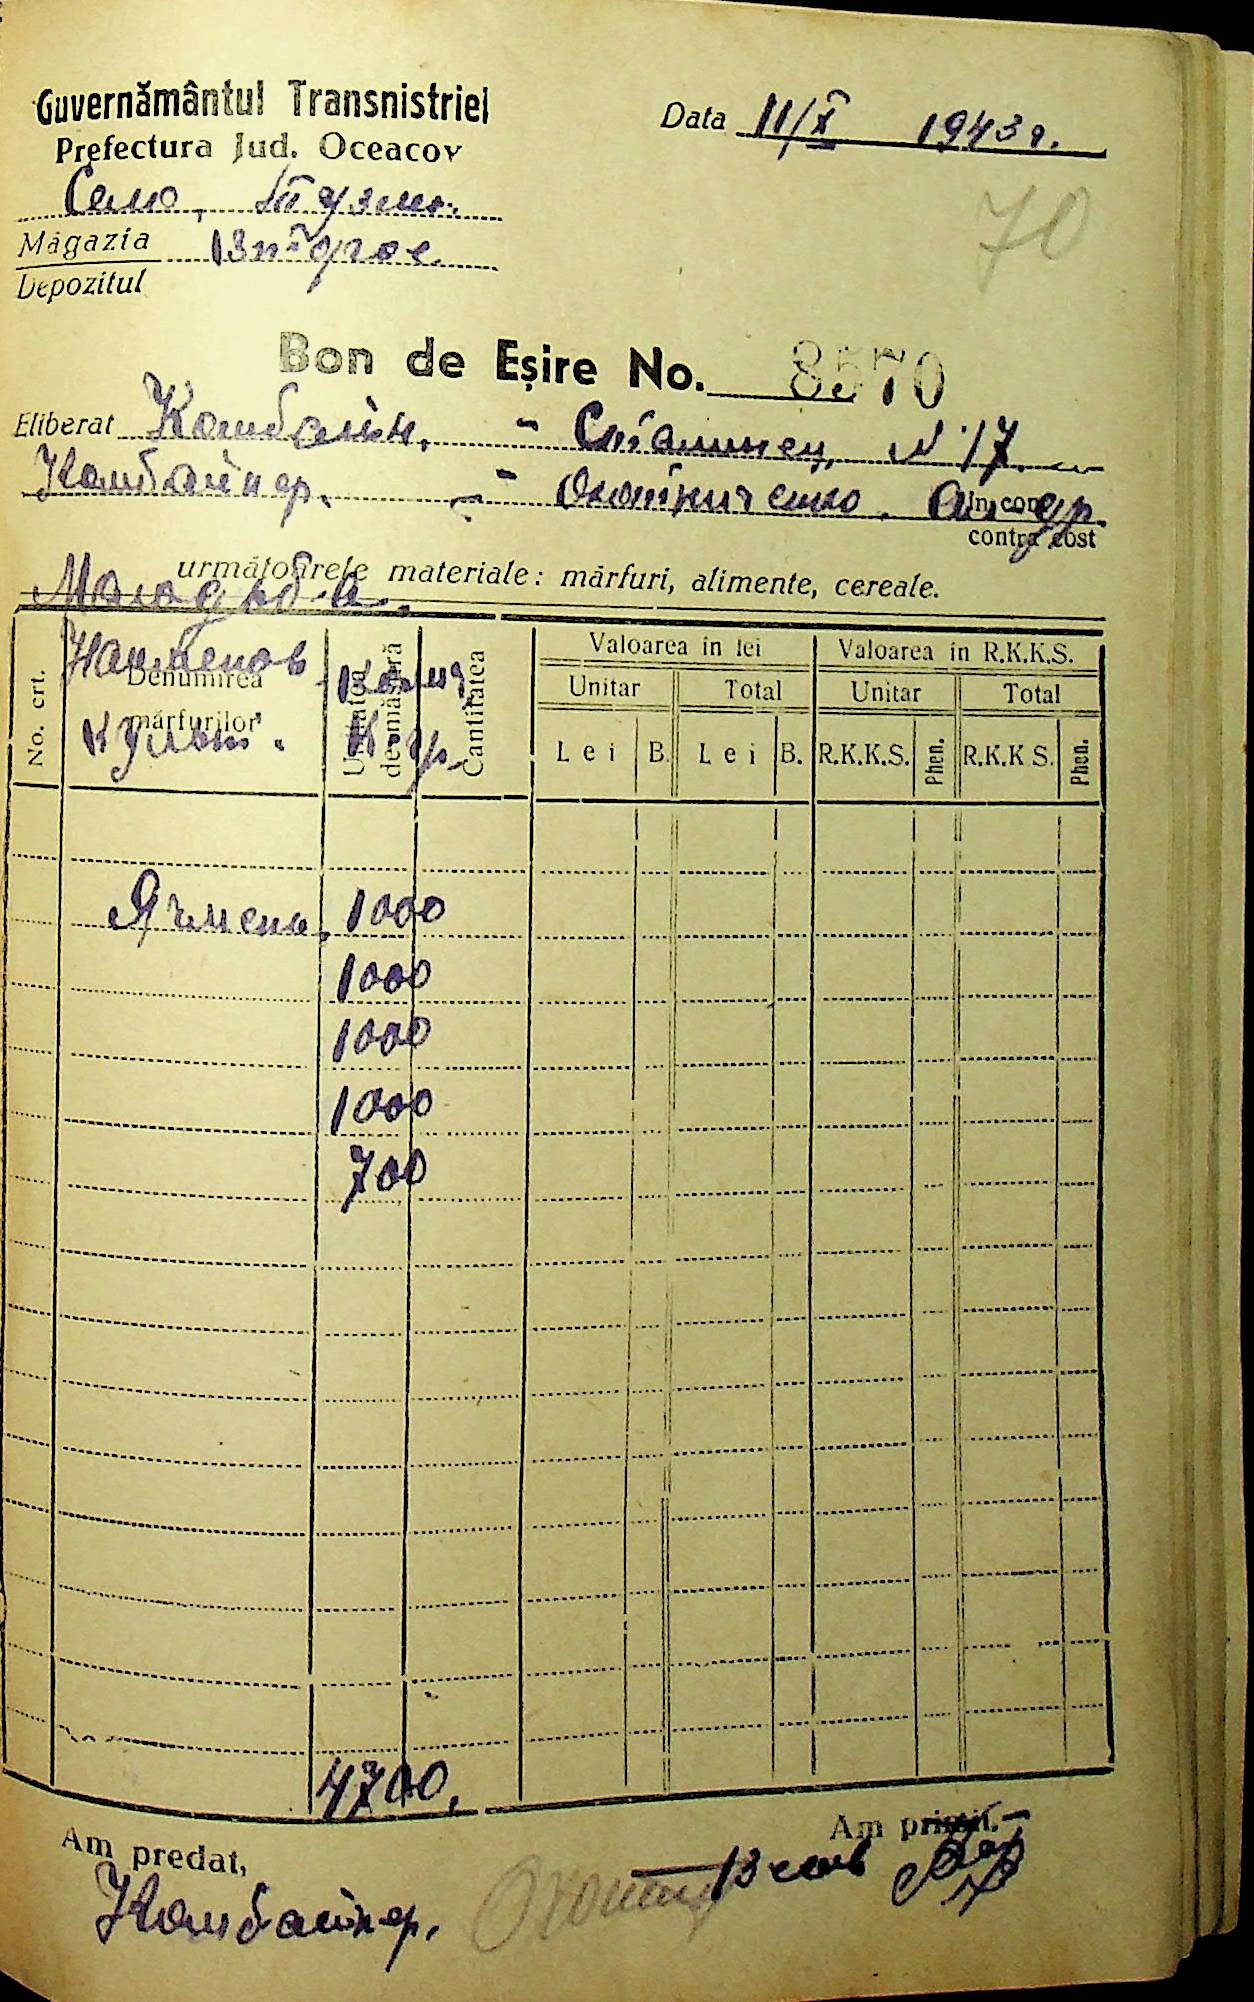 Guvernământul Transnistriei
Prefectura Jud. Oceacov
Data 11/X 1943 г.
Село, Тузлы.
70
Măgazia
Depozitul
Bon de Eșire No. 8570
Eliberat Комбайн. - Сталинец, N 17.
Комбайнер. - Охотниченко. Ал-др.
in cont
contra cost
următoarele materiale: mărfuri, alimente, cereale.
Молодьба.
No. crt.
Denumirea mărfurilor
Unitatea de măsură
Cantitatea
Valoarea in lei
Valoarea in R.K.K.S.
Наименов. культ.
Колич. Кгр.
Unitar Total Unitar Total
Lei B. Lei B. R.K.K.S. Phen. R.K.K S. Phen.
Ячмень, 1000
1000
1000
1000
700
4700.
Am predat,
Am primit.
Комбайнер.